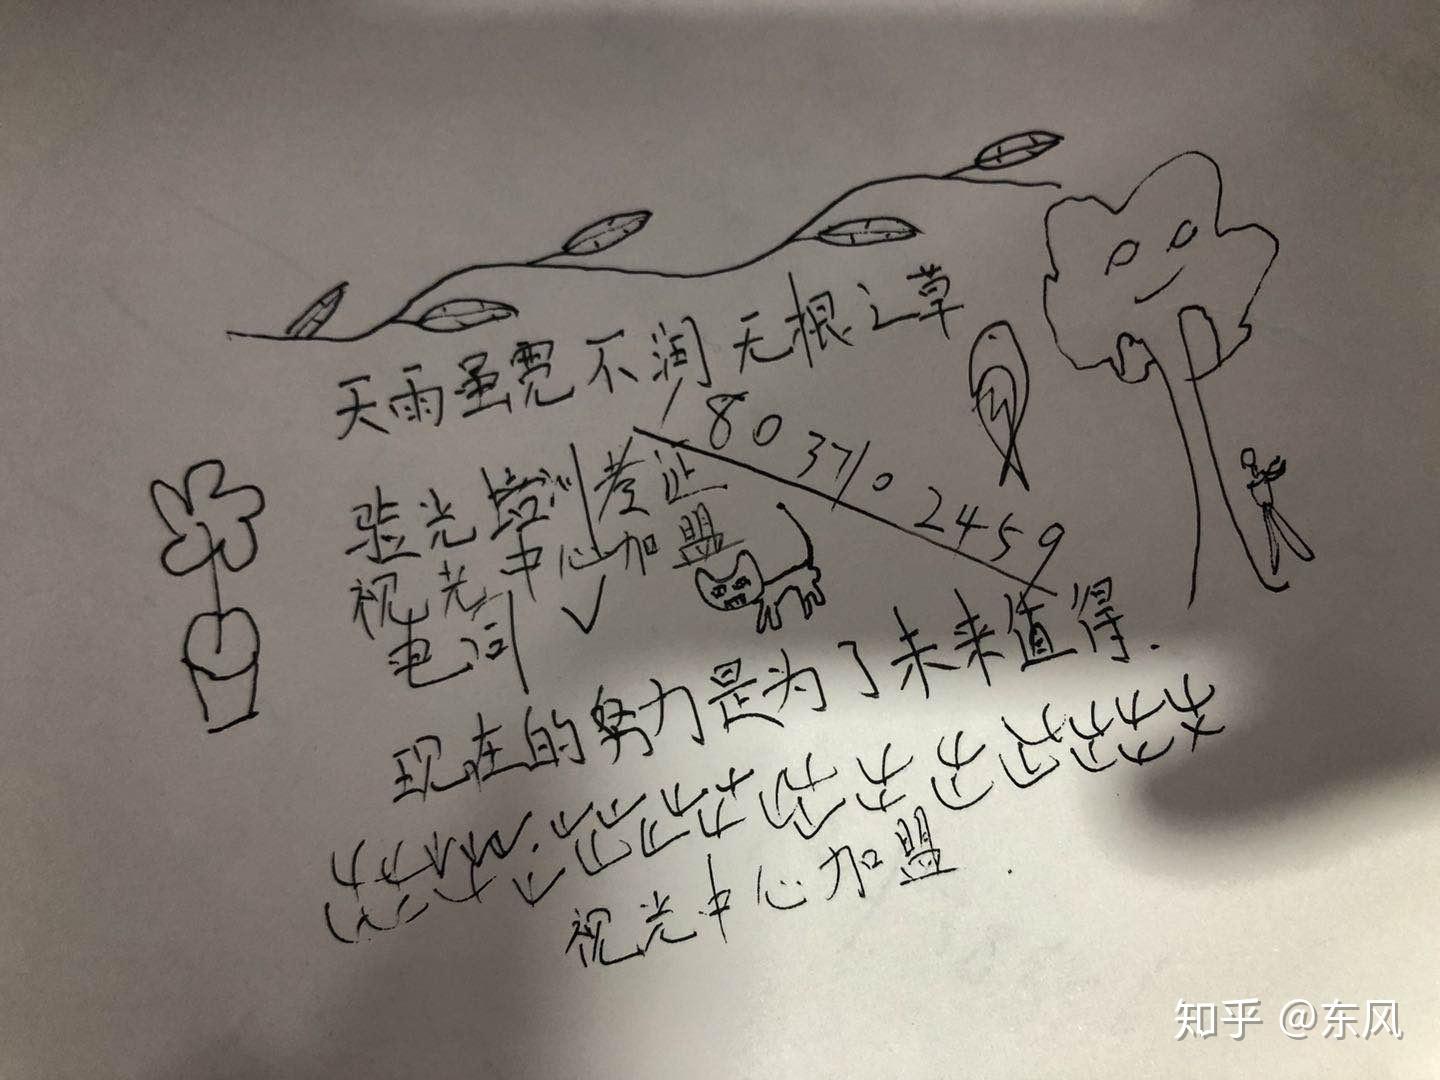 天雨虽宽不润无根之草
180 3710 2459
验光培训考证
视光中心加盟
电话
现在的努力是为了未来值得.
视光中心加盟.
知乎 @东风